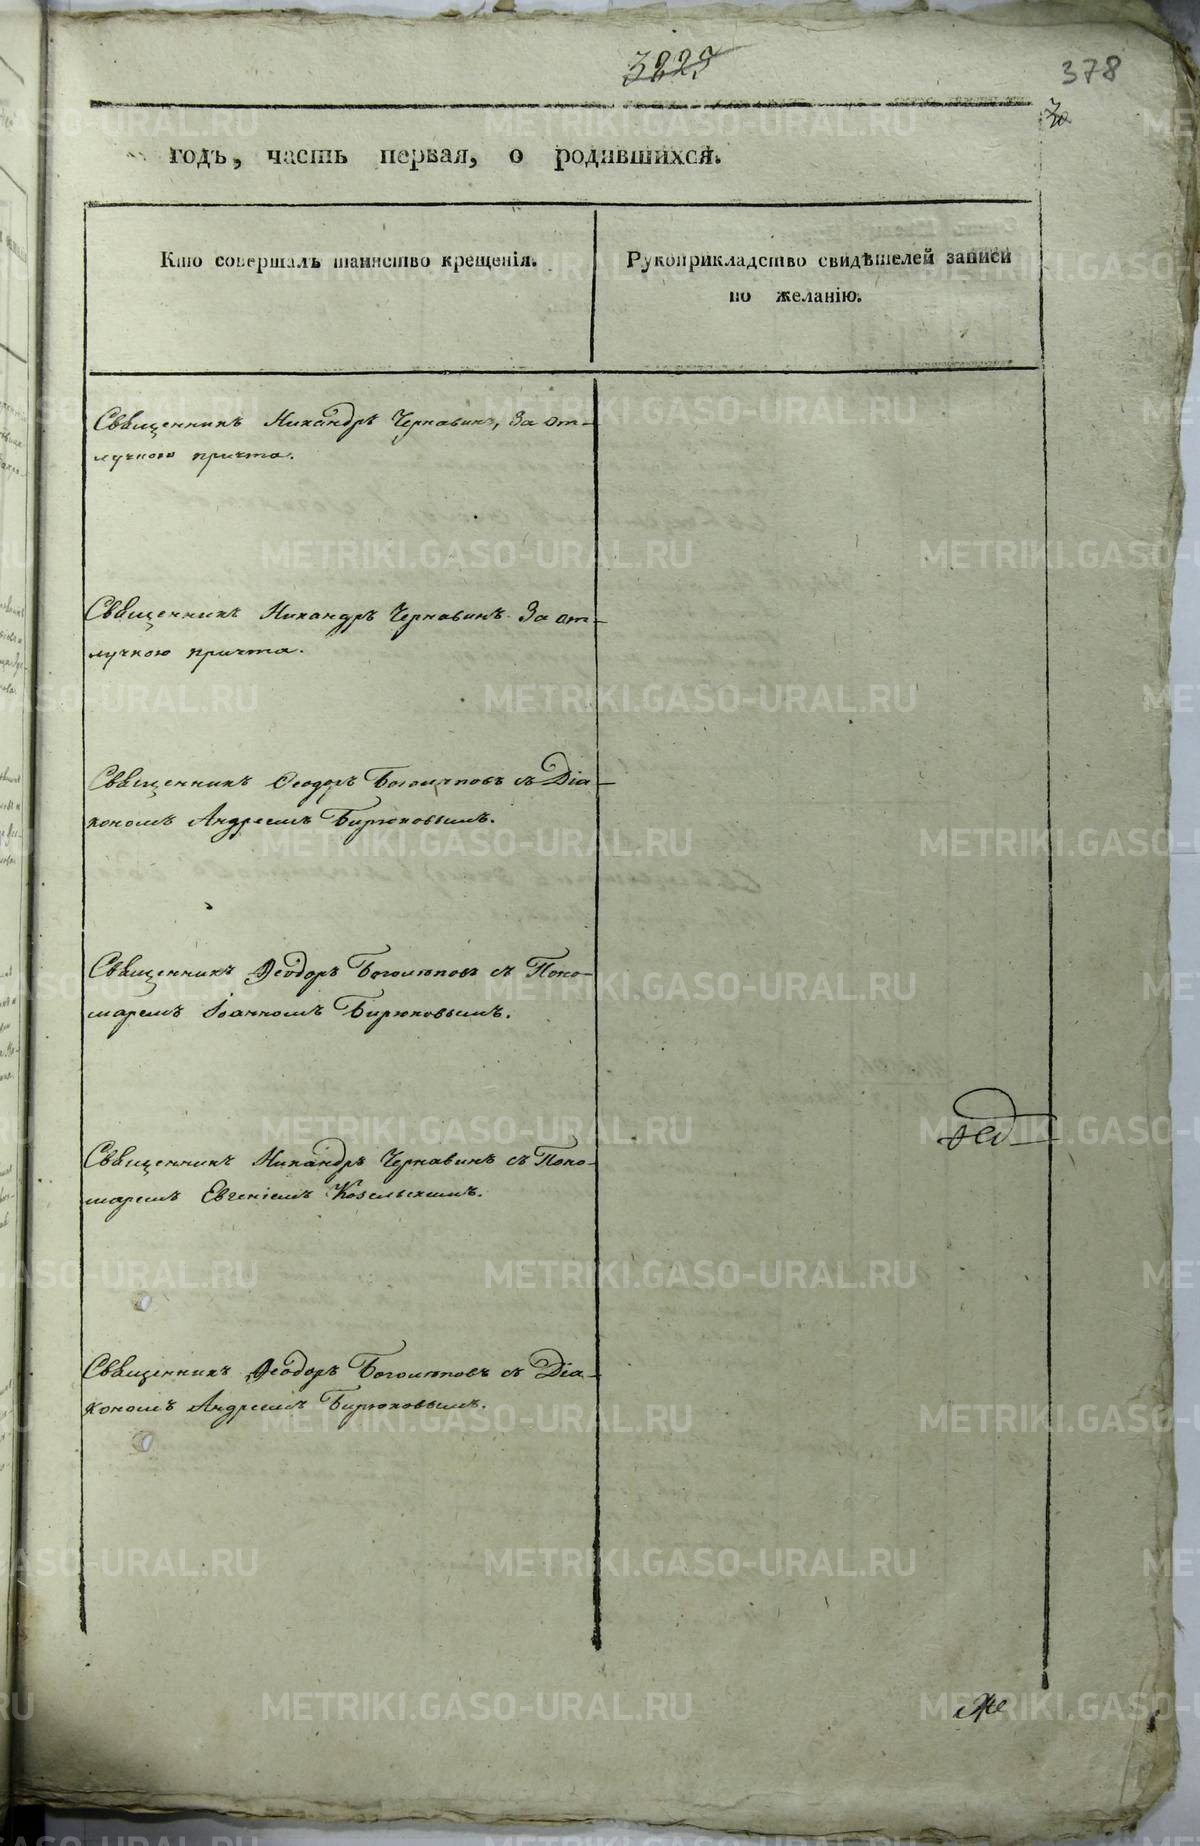 3225
378
годъ, часть первая, о родившихся.
Кто совершалъ таинство крещенія.
Рукоприкладство свидѣтелей записи
по желанію.
Священникъ Никандръ Чернавинъ, За от-
лучкою причта.
Священникъ Никандръ Чернавинъ За от-
лучкою причта.
Священникъ Ѳеодоръ Боголѣповъ съ Діа-
кономъ Андреемъ Бирюковымъ.
Священникъ Ѳеодоръ Боголѣповъ съ Поно-
маремъ Іоанномъ Бирюковымъ.
Священникъ Никандръ Чернавинъ съ Поно-
маремъ Евгеніемъ Козельскимъ.
Священникъ Ѳеодоръ Боголѣповъ съ Діа-
кономъ Андреемъ Бирюковымъ.
METRIKI.GASO-URAL.RU